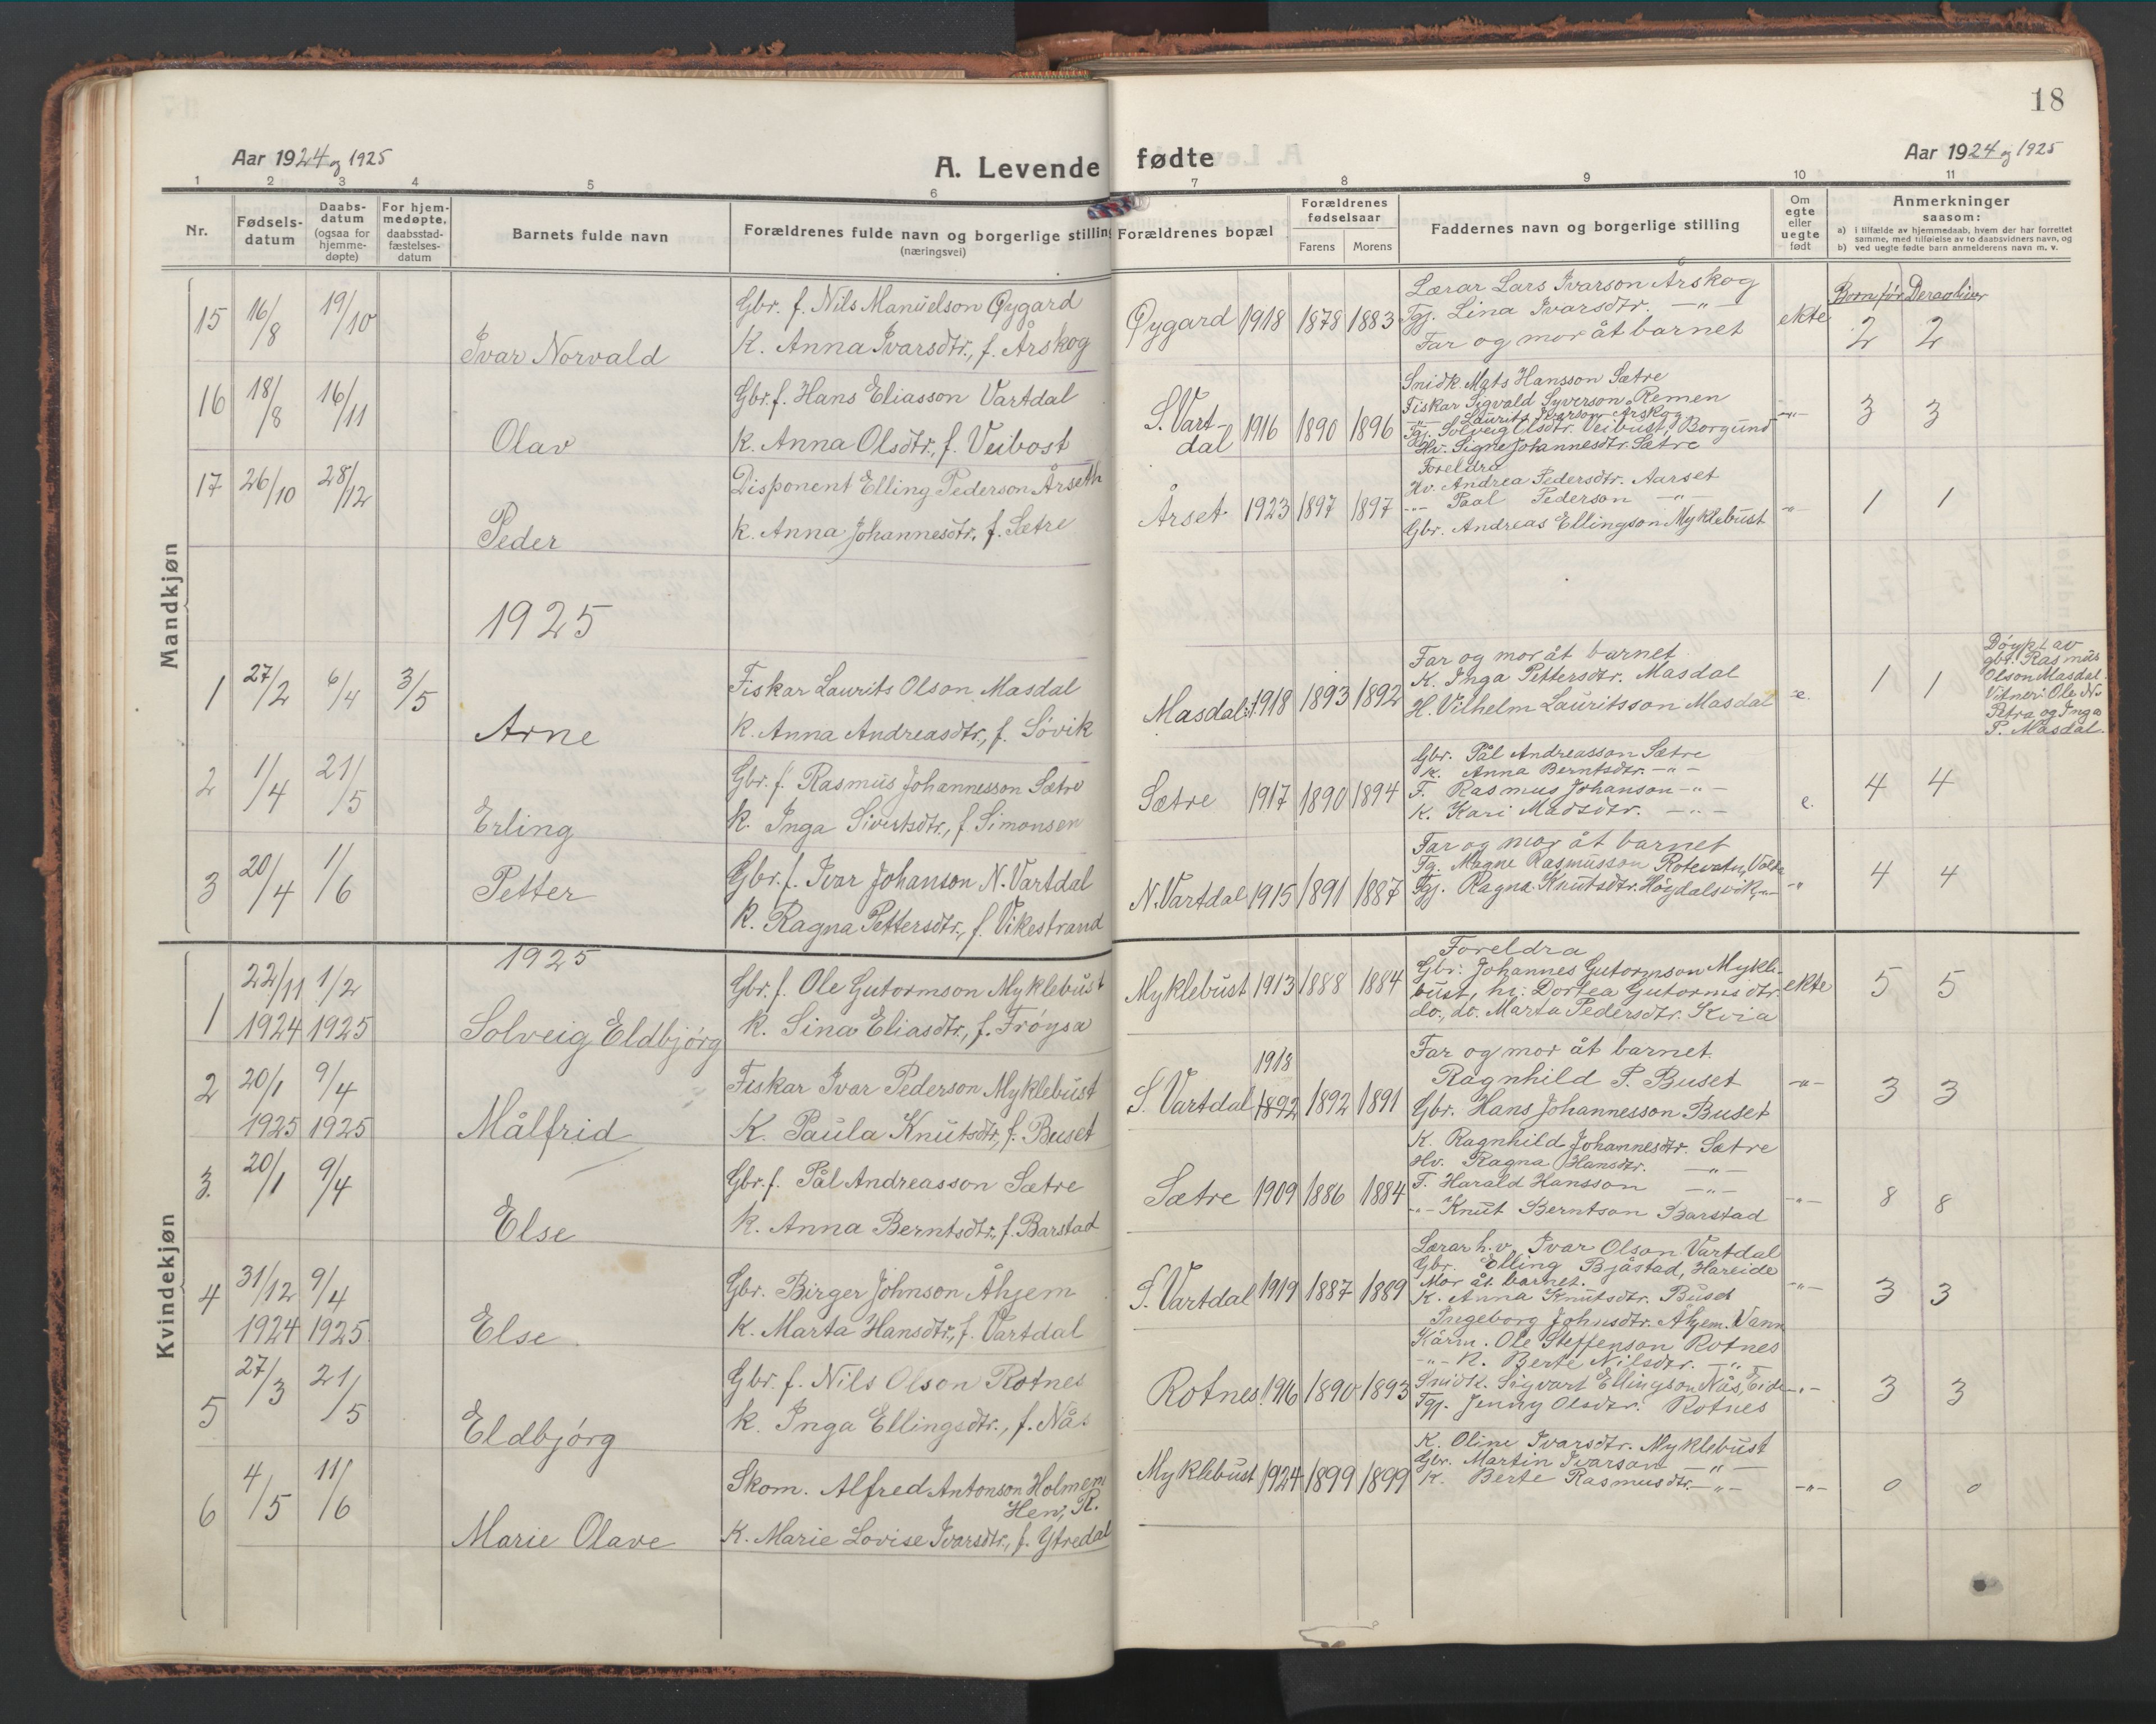 18
Aar 1924 og 1925
A. Levende fødte
Aar 1924 og 1925
1 2 3 4 5 6 7 8 9 10 11
Nr.
Fødsels-
datum
Daabs-
datum
(ogsaa for
hjemme-
døpte)
For hjem-
medøpte,
daabsstad-
fæstelses-
datum
Barnets fulde navn
Forældrenes fulde navn og borgerlige stilling
(næringsvei)
Forældrenes bopæl
Forældrenes
fødselsaar
Farens Morens
Faddernes navn og borgerlige stilling
Om
egte
eller
uegte
født
Anmerkninger
saasom:
a) i tilfælde av hjemmedaab, hvem der har forrettet
samme, med tilføielse av to daabsvidners navn, og
b) ved uegte fødte barn anmelderens navn m. v.
Mandkjøn
15 16/8 19/10
Ivar Norvald
Gbr. f. Nils Manuelson Øygard
K. Anna Ivarsdtr., f. Årskog
Øygard 1918 1878 1883
Lærar Lars Ivarson Årskog
Tgj. Lina Ivarsdtr. —"—
Far og mor åt barnet
ekte
Born før Derav liver
2 2
16 18/8 16/11
Olav
Gbr. f. Hans Eliasson Vartdal
K. Anna Olsdtr., f. Veibost
S. Vart-
dal 1916 1890 1896
Snidk. Mats Hansson Sætre
Fiskar Sigvald Syverson Remen
—"— Laurits Ivarson Årskog
Tgj. Solveig Olsdtr. Veibust, Borgund
Hv. Signe Johannesdtr. Sætre
—"— 3 3
17 26/10 28/12
Peder
Disponent Elling Pederson Årseth
K. Anna Johannesdtr. f. Sætre
Årset 1923 1897 1897
Foreldra
Hv. Andrea Pedersdtr. Aarset
-"- Paal Pederson —"—
Gbr. Andreas Ellingson Myklebust
-"- 1 1
1925
1 27/2 6/4 3/5
Arne
Fiskar Laurits Olson Masdal
K. Anna Andreasdtr., f. Søvik
Masdal 1918 1893 1892
Far og mor åt barnet
K. Inga Pettersdtr. Masdal
H. Vilhelm Lauritsson Masdal
e. 1 1
Døypt av
gbr. Rasmus
Olson Masdal.
Vitner: Ole N.
Petra og Inga
P. Masdal.
2 1/4 21/5
Erling
Gbr. f. Rasmus Johannesson Sætre
K. Inga Sivertsdtr., f. Simonsen
Sætre 1917 1890 1894
Gbr. Pål Andreasson Sætre
K. Anna Berntsdtr. —"—
F. Rasmus Johanson —"—
K. Kari Madsdtr. —"—
e. 4 4
3 20/4 1/6
Petter
Gbr. f. Ivar Johanson N. Vartdal
K. Ragna Pettersdtr., f. Vikestrand
N. Vartdal 1915 1891 1887
Far og mor åt barnet
Tg. Magne Rasmusson Rotevatn, Volda
Tgj. Ragna Knutsdtr. Høydalsvik, -"-
-"- 4 4
Kvindekjøn
1925
1 22/11 1924 1/2 1925
Solveig Eldbjørg
Gbr. f. Ole Gutormson Myklebust
K. Sina Eliasdtr., f. Frøysa
Myklebust 1913 1888 1884
Foreldra
Gbr. Johannes Gutormson Mykle-
bust, hv. Dortea Gutormsdtr.
do., do. Marta Pedersdtr. Kvia
ekte 5 5
2 20/1 1925 9/4 1925
Målfrid
Fiskar Ivar Pederson Myklebust
K. Paula Knutsdtr., f. Buset
S. Vartdal 1918 1892 1892 1891
Far og mor åt barnet.
Ragnhild P. Buset
Gbr. Hans Johannesson Buset
—"— 3 3
3. 20/1 9/4
Else
Gbr. f. Pål Andreasson Sætre
K. Anna Berntsdtr., f. Barstad
Sætre 1909 1886 1884
K. Ragnhild Johannesdtr. Sætre
Hv. Ragna Hansdtr. —"—
F. Harald Hansson —"—
-"- Knut Berntson Barstad
-"- 8 8
4 31/12 1924 9/4 1925.
Else
Gbr. Birger Johnson Åhjem
K. Marta Hansdtr., f. Vartdal
S. Vartdal 1919 1887 1889
Lærar h.v. Ivar Olson Vartdal
Gbr. Elling Bjåstad, Hareide
Mor åt barnet.
K. Anna Knutsdtr. Buset
Ingeborg Johnsdtr. Åhjem. Vann
—"— 3 3
5 27/3 21/5
Eldbjørg
Gbr. f. Nils Olson Rotnes
K. Inga Ellingsdtr., f. Nås
Rotnes 1916 1890 1893
Kårm. Ole Steffenson Rotnes
-"- K. Berte Nilsdtr. —"—
Snidk. Sigvart Ellingson Nås, Eid
Tgj. Jenny Olsdtr. Rotnes
-"- 3 3
6 4/5 11/6
Marie Olave
Skom. Alfred Antonson Holmem
Hen, R.
K. Marie Lovise Ivarsdtr., f. Ytredal
Myklebust 1924 1899 1899
K. Oline Ivarsdtr. Myklebust
Gbr. Martin Ivarson —"—
K. Berte Rasmusdtr. —"—
—"— 0 0